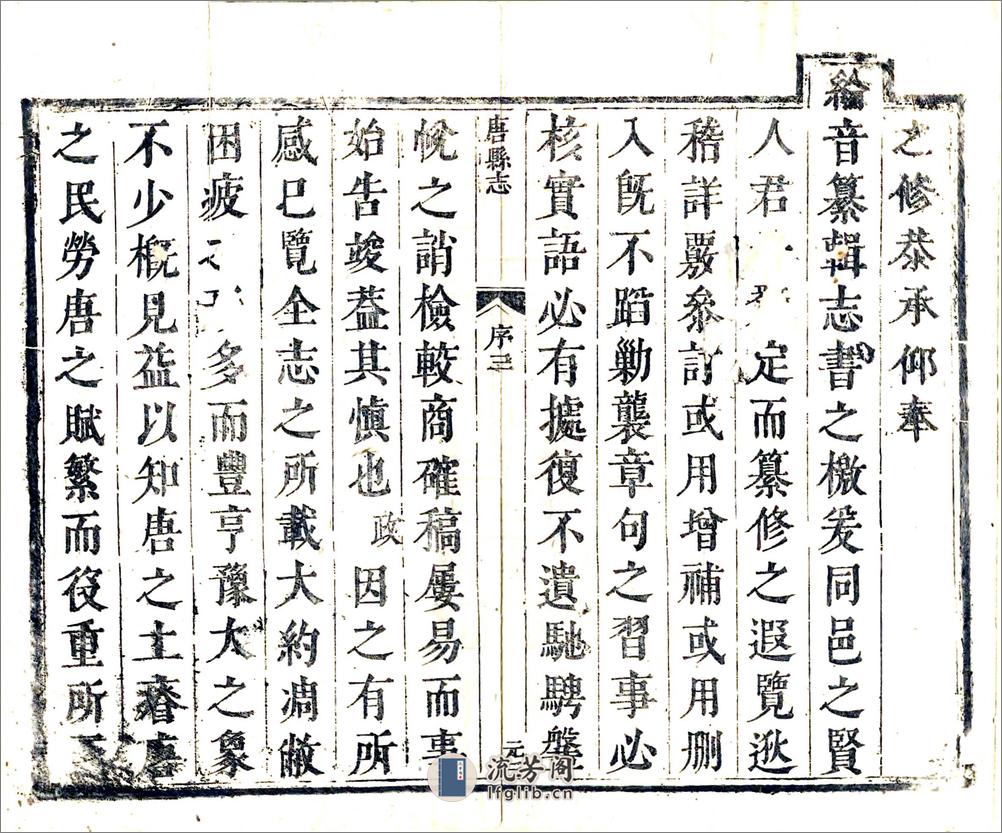 之修恭承仰奉
綸音纂輯志書之檄爰同邑之賢
人君定而纂修之遐覽逖
稽詳覈叅訂或用增補或用刪
入旣不蹈勦襲章句之習事必
核實語必有據復不遺馳騁盤
唐縣志 序三 元
帨之誚檢較商確稿屢易而事
始告竣葢其慎也政因之有所
感巳覽全志之所載大約凋敝
困疲多而豐亨豫大之象
不少概見益以知唐之土瘠
之民勞唐之賦繁而役重所
流芳阁
lfglib.cn